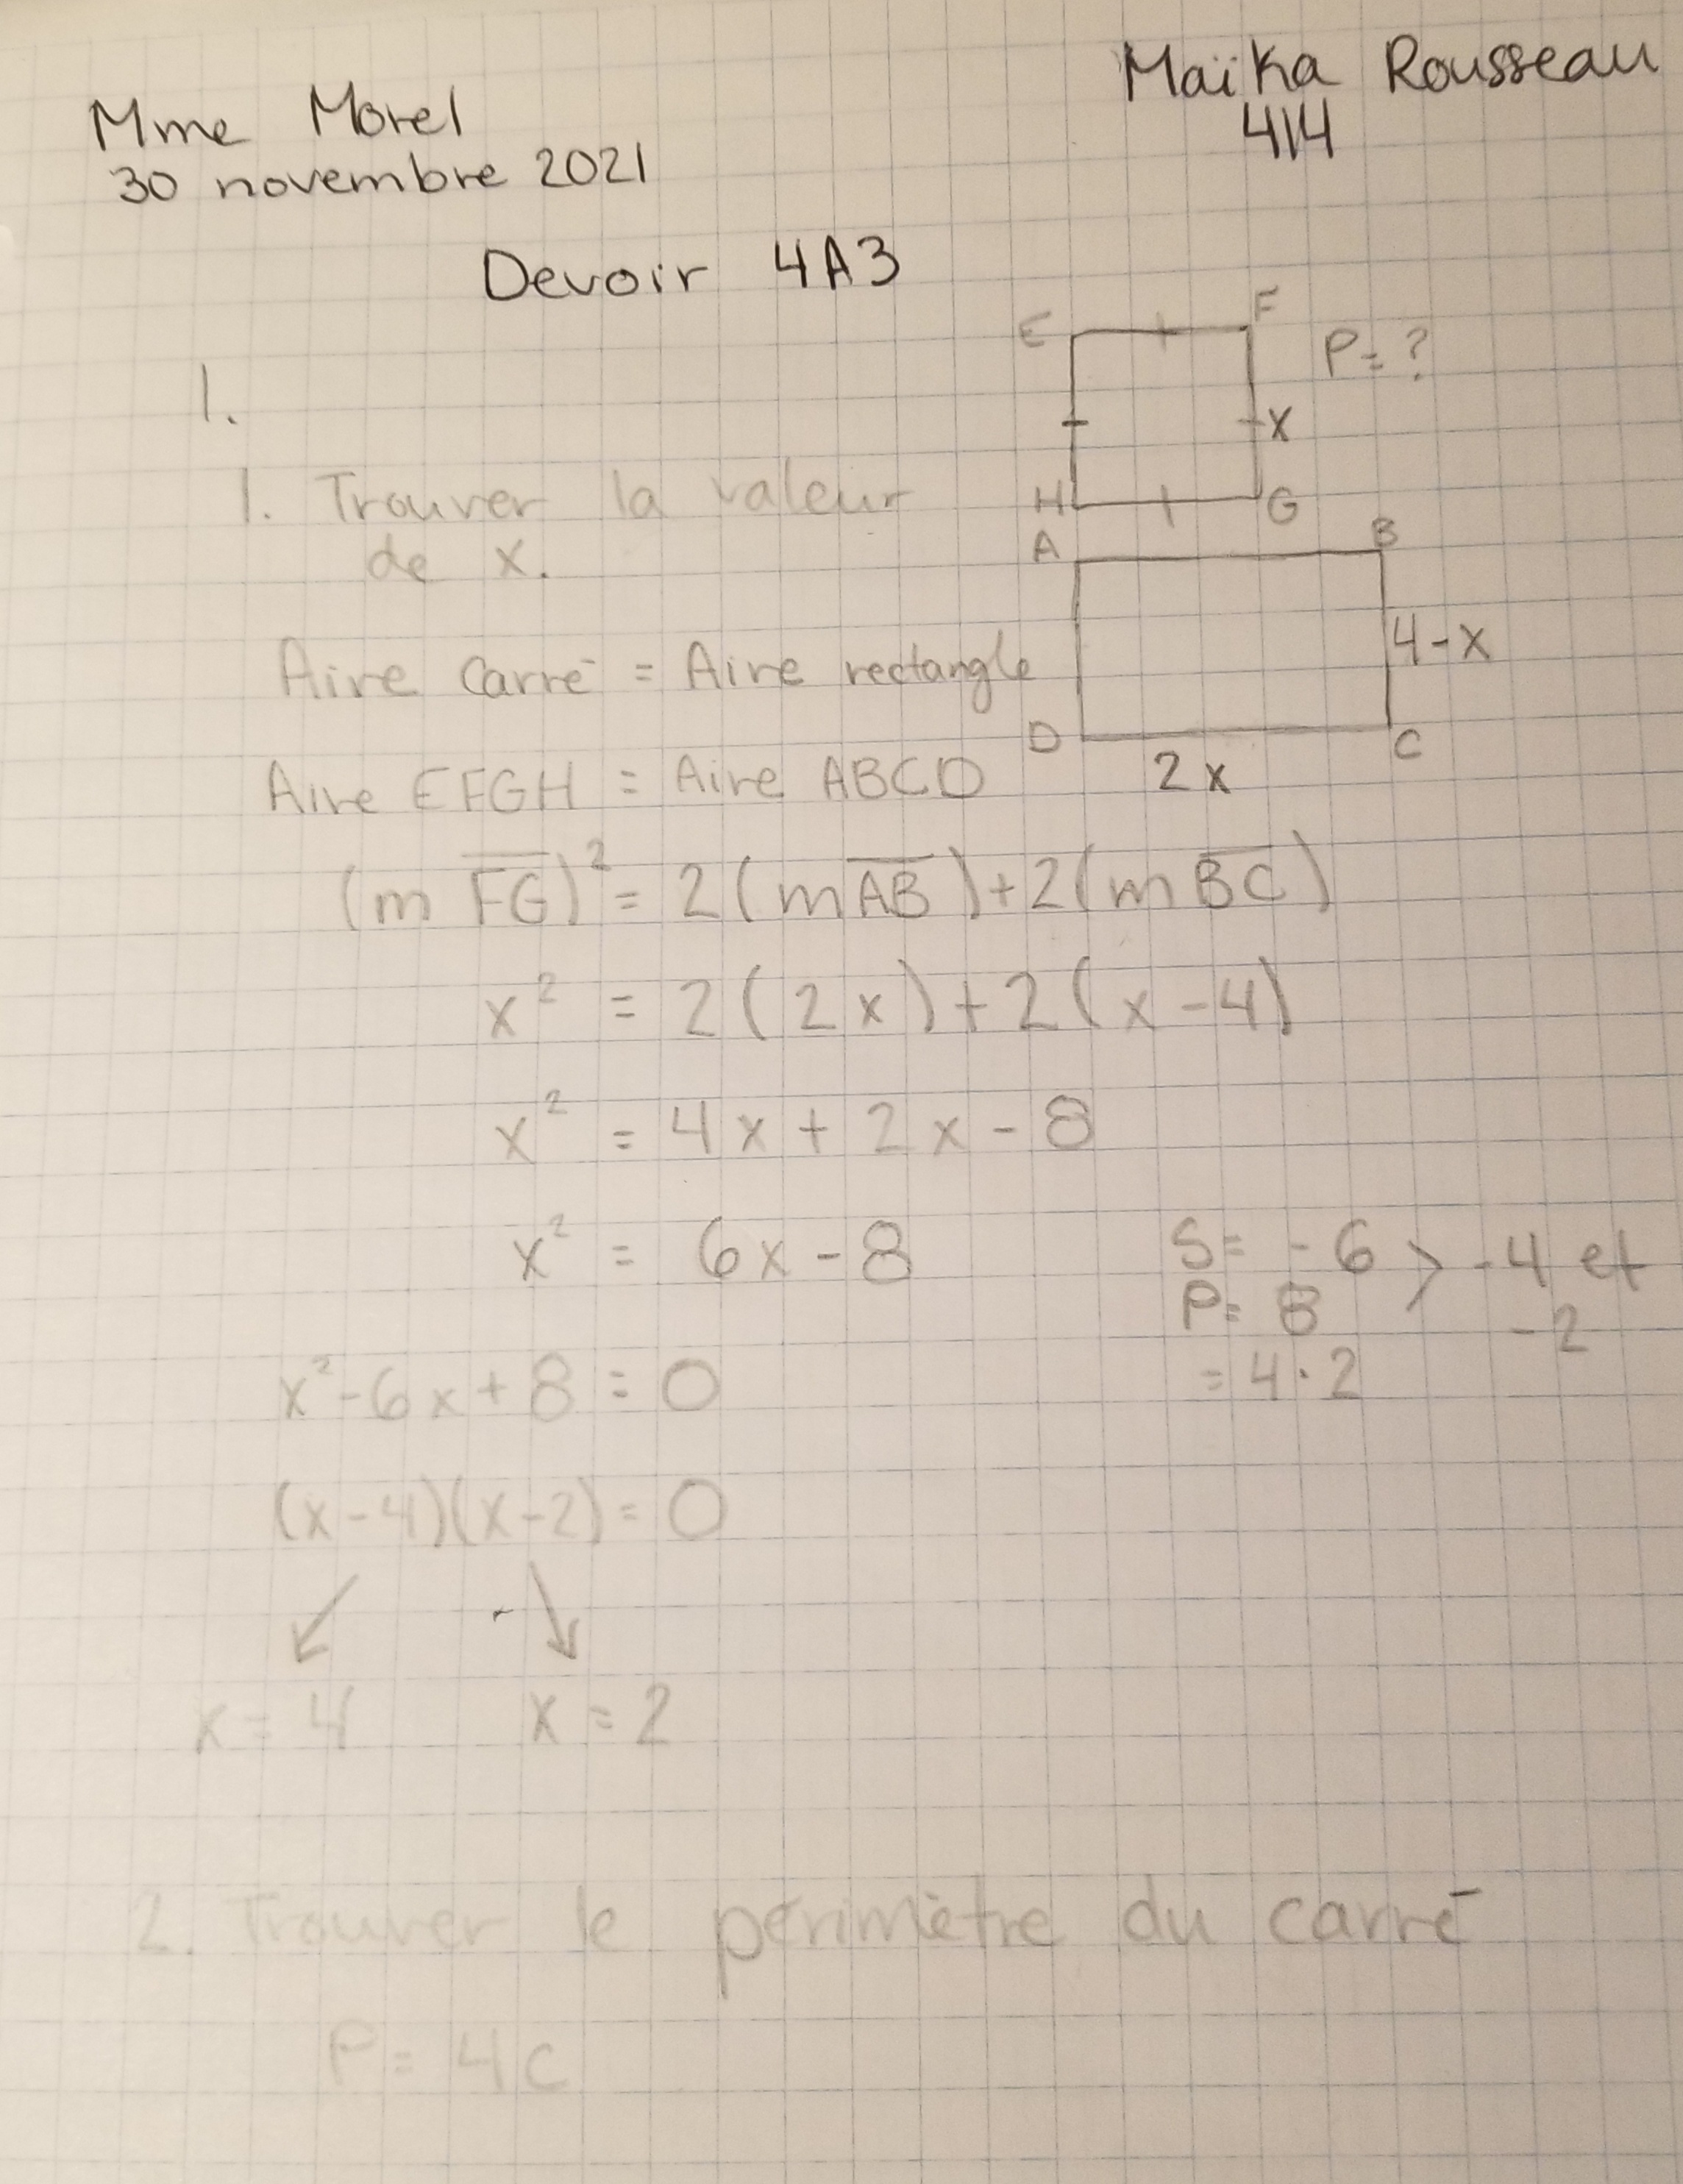 Maïka Rousseau
414
Mme Morel
30 novembre 2021
Devoir 4A3
E F
P= ?
x
H G
1.
1. Trouver la valeur
de x.
A B
4-x
D C
2x
Aire carré = Aire rectangle
Aire EFGH = Aire ABCD
(m FG)² = 2(m AB)+2(m BC)
x² = 2(2x)+2(x-4)
x² = 4x + 2x - 8
x² = 6x - 8
S= -6 > -4 et
P= 8 -2
= 4·2
x²-6x+8=0
(x-4)(x-2)=0
x=4 x=2
2. Trouver le périmètre du carré
P= 4c